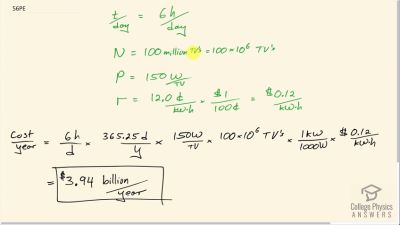 56PE
t/day = 6h/day
N = 100 million TV's = 100 × 10⁶ TV's
P = 150 W/TV
r = 12.0 ¢/kW·h × $1/100¢ = $0.12/kW·h
Cost/year = 6h/d × 365.25d/y × 150W/TV × 100×10⁶ TV's × 1kW/1000W × $0.12/kW·h
= $3.94 billion/year
College Physics
ANSWERS